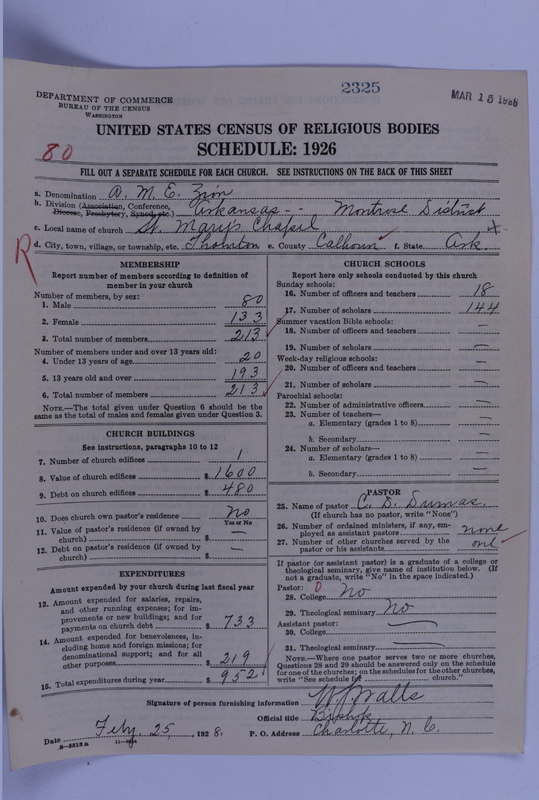 2325
MAR 15 1928
DEPARTMENT OF COMMERCE
BUREAU OF THE CENSUS
WASHINGTON
UNITED STATES CENSUS OF RELIGIOUS BODIES
SCHEDULE: 1926
80
FILL OUT A SEPARATE SCHEDULE FOR EACH CHURCH. SEE INSTRUCTIONS ON THE BACK OF THIS SHEET
a. Denomination A. M. E. Zion
b. Division (Association, Conference, Diocese, Presbytery, Synod, etc.) Arkansas - - Montrose District
c. Local name of church St. Marys Chapel
R
d. City, town, village, or township, etc. Thornton e. County Calhoun f. State Ark.
MEMBERSHIP
Report number of members according to definition of
member in your church
Number of members, by sex:
1. Male 80
2. Female 133
3. Total number of members 213
Number of members under and over 13 years old:
4. Under 13 years of age 20
5. 13 years old and over 193
6. Total number of members 213
NOTE.—The total given under Question 6 should be the
same as the total of males and females given under Question 3.
CHURCH BUILDINGS
See instructions, paragraphs 10 to 12
7. Number of church edifices 1
8. Value of church edifices $ 1600
9. Debt on church edifices $ 480
10. Does church own pastor's residence? No
Yes or No
11. Value of pastor's residence (if owned by
church) $ —
12. Debt on pastor's residence (if owned by
church) $ —
EXPENDITURES
Amount expended by your church during last fiscal year
13. Amount expended for salaries, repairs,
and other running expenses; for im-
provements or new buildings; and for
payments on church debt $ 733
14. Amount expended for benevolences, in-
cluding home and foreign missions; for
denominational support; and for all
other purposes $ 219
15. Total expenditures during year $ 952
CHURCH SCHOOLS
Report here only schools conducted by this church
Sunday schools:
16. Number of officers and teachers 18
17. Number of scholars 144
Summer vacation Bible schools:
18. Number of officers and teachers —
19. Number of scholars —
Week-day religious schools:
20. Number of officers and teachers —
21. Number of scholars —
Parochial schools:
22. Number of administrative officers —
23. Number of teachers—
a. Elementary (grades 1 to 8) —
b. Secondary —
24. Number of scholars—
a. Elementary (grades 1 to 8) —
b. Secondary —
PASTOR
25. Name of pastor C. D. Dumas.
(If church has no pastor, write "None")
26. Number of ordained ministers, if any, em-
ployed as assistant pastors none
27. Number of other churches served by the
pastor or his assistants one
If pastor (or assistant pastor) is a graduate of a college or
theological seminary, give name of institution below. (If
not a graduate, write "No" in the space indicated.)
Pastor: 0
28. College No
29. Theological seminary No
Assistant pastor:
30. College —
31. Theological seminary —
NOTE.—Where one pastor serves two or more churches,
Questions 28 and 29 should be answered only on the schedule
for one of the churches; on the schedules for the other churches,
write "See schedule for church."
Signature of person furnishing information
Official title Bishop
Date Feby. 25, 1928. P. O. Address Charlotte, N. C.